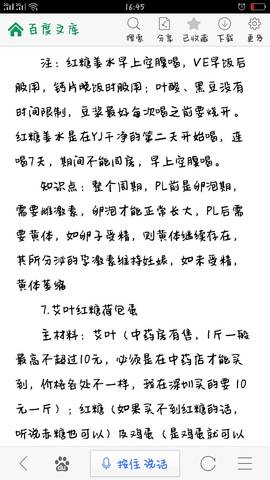 16:45
百度文库
搜索 分享 已收藏 下载 更多
注：红糖姜水早上空腹喝，VE早饭后
服用，钙片晚饭时服用；叶酸、黑豆没有
时间限制，豆浆最好每次喝之前要烧开。
红糖姜水是在YJ干净的第二天开始喝，连
喝7天，期间不能同房，早上空腹喝。
知识点：整个周期，PL前是卵泡期，
需要雌激素，卵泡才能正常长大，PL后需
要黄体，如卵子受精，则黄体继续存在，
其所分泌的孕激素维持妊娠，如未受精，
黄体萎缩
7.艾叶红糖荷包蛋
主材料：艾叶（中药房有售，1斤一般
最高不超过10元，必须是在中药店才能买
到，价格各处不一样，我在深圳买的要 10
元一斤）；红糖（如果买不到红糖的话，
听说赤糖也可以）及鸡蛋（是鸡蛋就可以
按住 说话